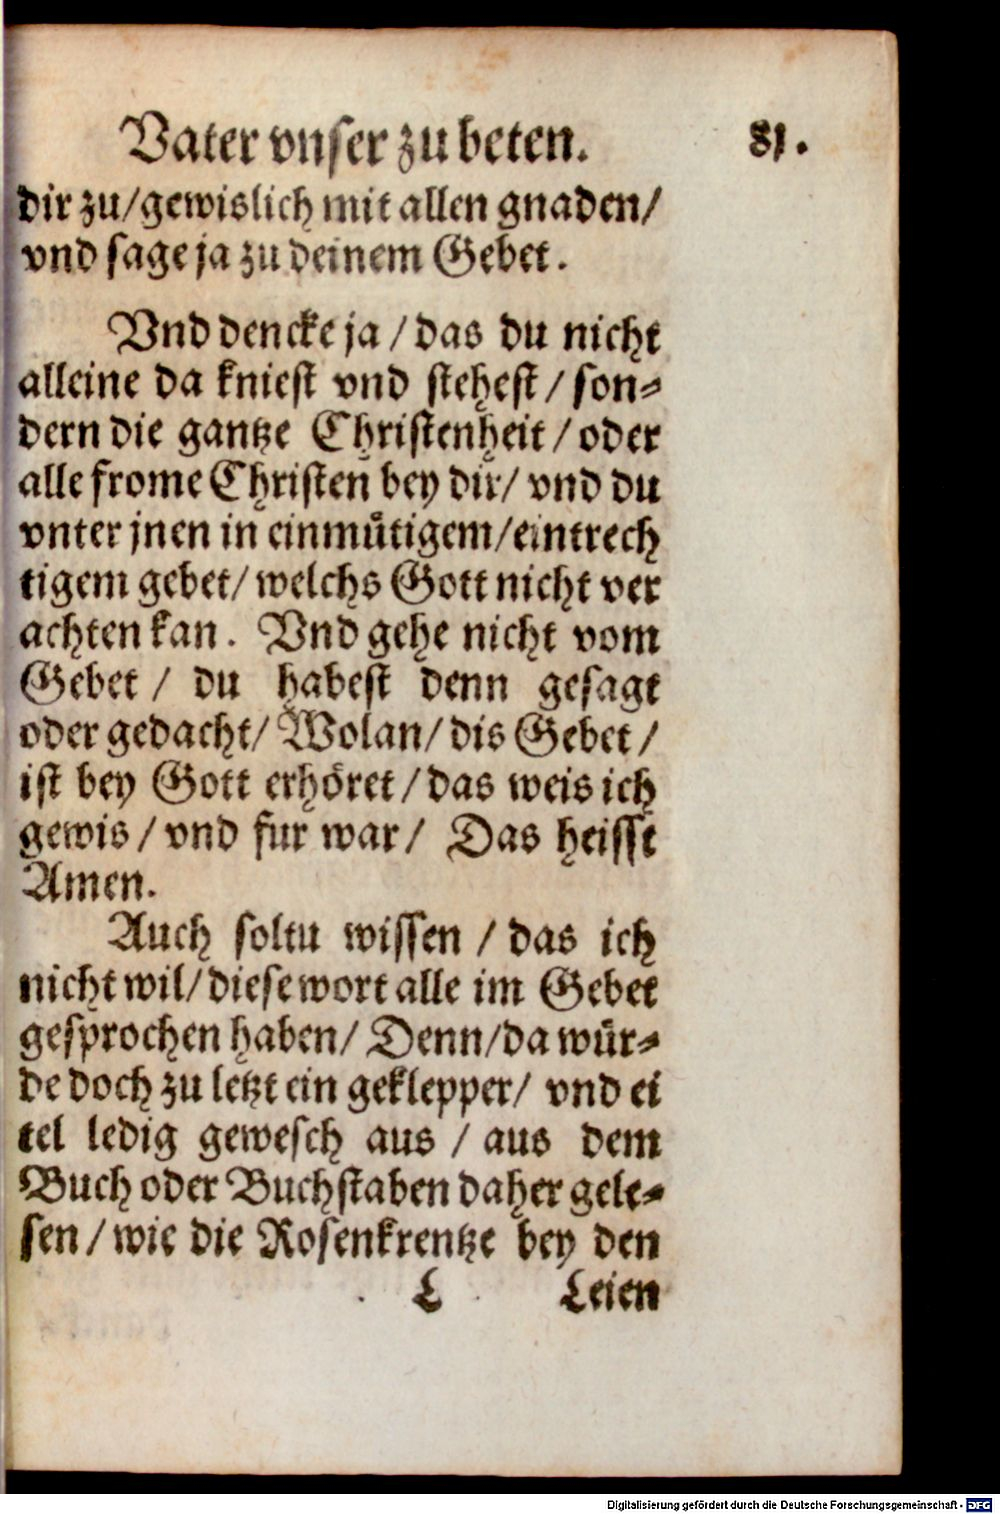 Vater vnser zu beten. 81.
dir zu/gewislich mit allen gnaden/
vnd sage ja zu deinem Gebet.
Vnd dencke ja / das du nicht
alleine da kniest vnd stehest / son⸗
dern die gantze Christenheit / oder
alle frome Christen bey dir/ vnd du
vnter jnen in einmütigem/eintrech
tigem gebet/ welchs Gott nicht ver
achten kan. Vnd gehe nicht vom
Gebet / du habest denn gesagt
oder gedacht/ Wolan/ dis Gebet /
ist bey Gott erhöret / das weis ich
gewis / vnd fur war/ Das heisst
Amen.
Auch soltu wissen / das ich
nicht wil/ diese wort alle im Gebet
gesprochen haben/ Denn/da wür⸗
de doch zu letzt ein geklepper/ vnd ei
tel ledig gewesch aus / aus dem
Buch oder Buchstaben daher gele⸗
sen / wie die Rosenkrentze bey den
L Leien
Digitalisierung gefördert durch die Deutsche Forschungsgemeinschaft - DFG